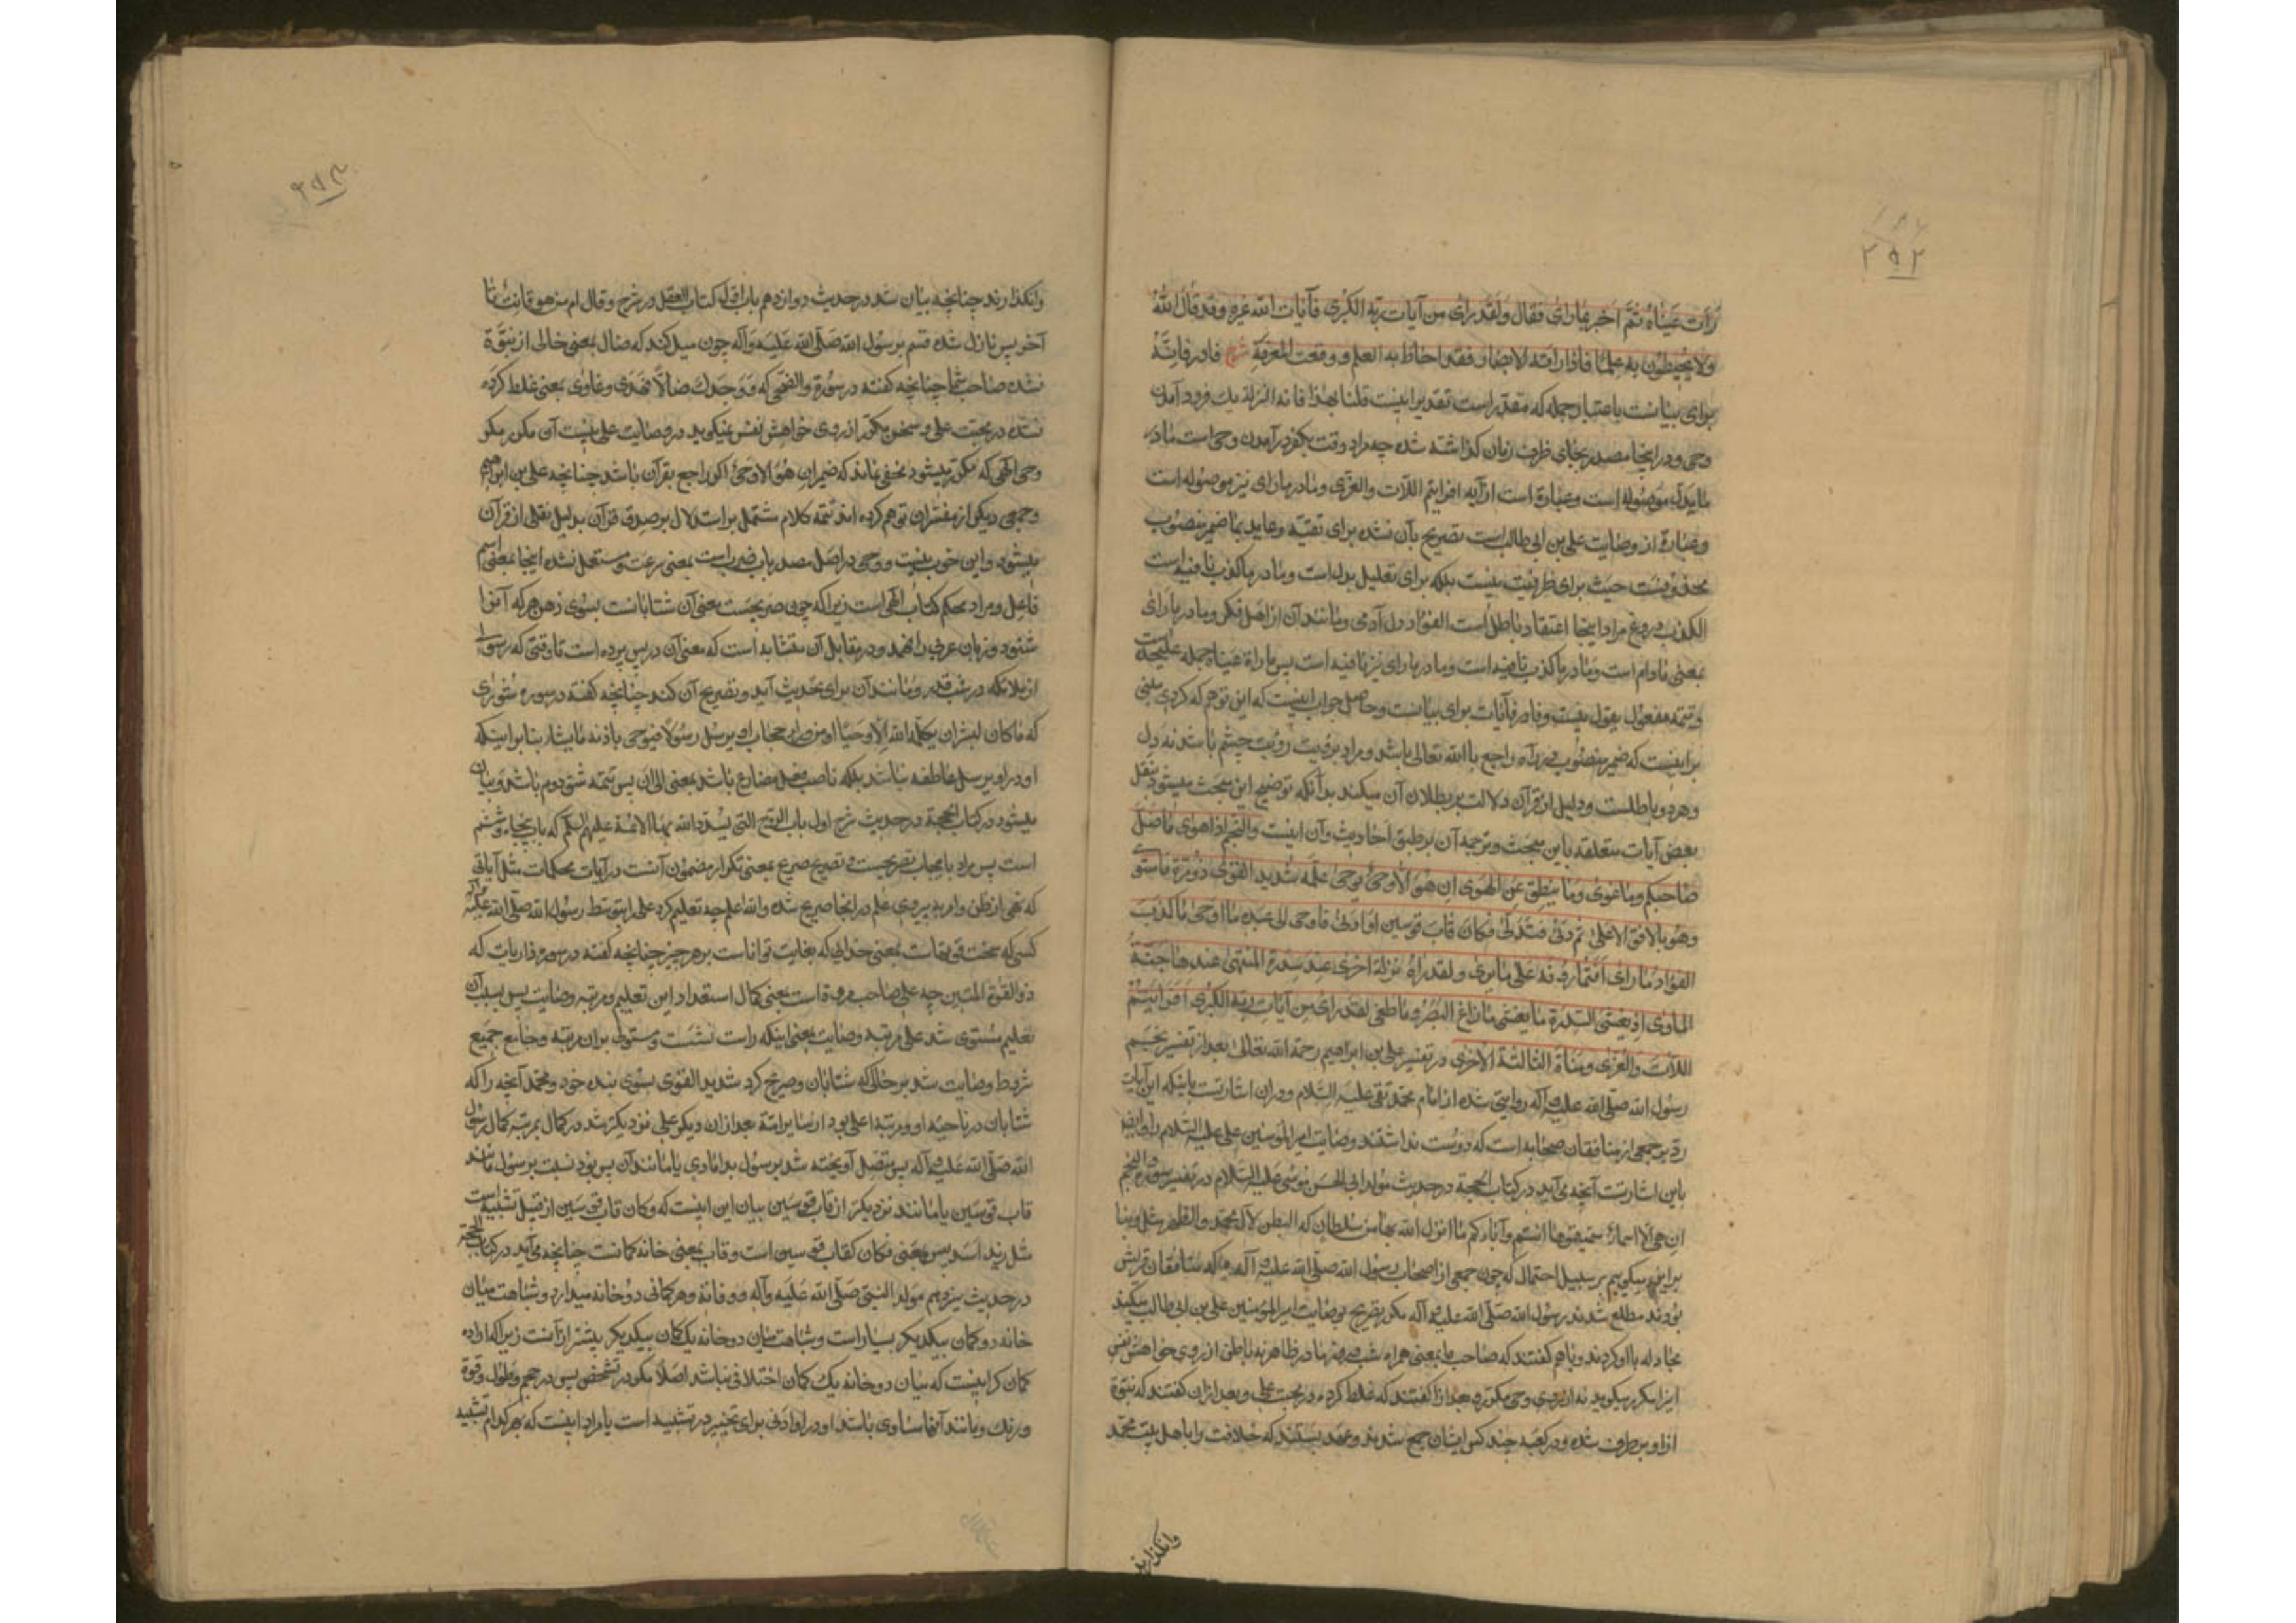 ۲۵۲
رَأت عَیناهُ ثُمَّ اَخبر بما رای فقال وَلَقَد رَای من آیات ربّه الکبری فآیات الله غیره وقد قال اللهُ
ولا یُحیطون به علماً فاذا رأته الابصار فقد احاط به العلم ووقعت المعرفة شرح فا در فانّه
برای بیانست باعتبار جمله که مقدّر است تقدیر اینست قلنا بهذا فانه النزلة یک فرود آمدن
وحی و در اینجا مصدر بجای ظرف زمان گذاشته شده چه مراد وقت یکفرد آمدن وحی است ما در
ما یدلّ موصوله است وعبارة است از آیه افرایتم اللّات والعزّی وما در ما رای نیز موصوله است
وعبارة از وصایت علی بن ابی طالب است تصریح بآن نشده برای تقیّه وعاید بما ضمیر منصوب
محذوفست حیث برای ظرفیّت نیست بلکه برای تعلیل یدلّ است وما در ما کذب نافیه است
الکذب دروغ مراد اینجا اعتقاد باطل است الفؤاد دل آدمی ومانند آن از اهل فکر وما در ما رای
بمعنی مادام است وما در ما کذب نافیه است وما در ما رای نیز نافیه است پس ما راة عیناه جمله علیحده است
وتتمه مفعول یقول نیست وفا در فآیات برای بیانست وحاصل جواب اینست که این توهم که کردی مبنی
بر اینست که ضمیر منصوب در رآه راجع باالله تعالی باشد ومراد برؤیت رؤیت چشم باشد نه دل
وهر دو باطلست ودلیل از قرآن دلالت بر بطلان آن میکند بدانکه توضیح این مبحث میشود بنقل
بعض آیات متعلقه باین مبحث وترجمه آن بر طبق احادیث وآن اینست والنجم اذا هوی ما ضلّ
صاحبکم وما غوی وما ینطق عن الهوی ان هو الّا وحی یوحی علّمه شدید القوی ذو مرّة فاستوی
وهو بالافق الاعلی ثم دنی فتدلّی فکان قاب قوسین او ادنی فاوحی الی عبده ما اوحی ما کذب
الفؤاد ما رای افتمارونه علی ما یری ولقد راه نزلة اخری عند سدرة المنتهی عندها جنّة
الماوی اذ یغشی السّدرة ما یغشی ما زاغ البصر وما طغی لقد رای من آیات ربّه الکبری افرایتم
اللّات والعزّی ومناة الثالثة الاخری در تفسیر علی بن ابراهیم رحمة الله تعالی بعد از تفسیر نجم
رسول الله صلی الله علیه وآله روایتی شده از امام محمّد تقی علیه السّلام ودر ان اشارتست باینکه این آیات
ردّ بر جمعی از منافقان صحابه است که دوست نداشتند وصایت امیر المؤمنین علی علیه السّلام را وایضا
باین اشارتست آنچه می آید در کتاب الحجة در حدیث مولد ابی الحسن موسی علیه السّلام در تفسیر سورة والنجم
ان هی الّا اسماء سمیتموها انتم وآباؤکم ما انزل الله بها من سلطان که
براین میگوییم بر سبیل احتمال که چون جمعی از اصحاب رسول الله صلی الله علیه وآله که منافقان قریش
بودند مطلع شدند رسول الله صلی الله علیه وآله مکرر تصریح بوصایت امیر المؤمنین علی بن ابی طالب میکند
مجادله بااو کردند وباهم گفتند که صاحب ما بمعنی همراه شب وروز ما در ظاهر نه باطن از روی خواهش نفس
اینرا مکرر میگوید نه از روی وحی مکرر وبعد ازآ گفتند که غلط کرده در محبت علی وبعد ازان گفتند که نبوّة
ازاو برطرف شده ودر کعبه چند کس ایشان جمع شدند وعهد بستند که خلافت را باهل بیت محمّد
وانگذارند
۲۵۳
وانگذارند چنانچه بیان شد در حدیث دوازدهم باب اوّل کتاب العقل در شرح وقال ام من هو قانت تا
آخر پس نازل شده قسم برسول الله صلی الله علیه وآله چون میل کند که ضالّ بمعنی خالی از نبوّة
نشده صاحب شما چنانچه گفته در سورة والضّحی که ووجدک ضالّاً فهدی وغاوی بمعنی غلط کرده
نشده در محبت علی وسخن مکرّر از روی خواهش نفس نمیگوید در وصایت علی نیست آن مکرر مگر
وحی الهی که مکرّر میشود مخفی نماند که ضمیر ان هو الّا وحی اگر راجع بقرآن باشد چنانچه علی بن ابراهیم
وجمعی دیگر از مفسّران توهم کرده اند تتمه کلام مشتمل بر استدلال بر صدق قرآن بدلیل نقلی از قرآن
میشود واین خوب نیست ووحی در اصل مصدر باب ضرب است بمعنی سرعت ومستعمل شده اینجا بمعنی اسم
فاعل ومراد محکم کتاب الهی است زیرا که چون صریحست معنی آن شتابانست بسوی ذهن هر که آنرا
شنود وزبان عربی را فهمد ودر مقابل آن متشابه است که معنی آن در پس پرده است تا وقتی که رسولی
از ملائکه در شب قدر ومانند آن برای تحدیث آید وتصریح آن کند چنانچه گفته در سوره شوری
که ما کان لبشر ان یکلّمه الله الّا وحیاً او من وراء حجاب او یرسل رسولاً فیوحی باذنه ما یشاء بنا بر اینکه
او در او یرسل عاطفه نباشد بلکه ناصب فعل مضارع باشد بمعنی الی ان پس تتمه شق دوم باشد وبیان
میشود در کتاب الحجة در حدیث شرح اول باب الروح التی یسدّد الله بها الائمة علیهم السّلم که باب پنجاه وششم
است پس مراد بایحاء تصریحست وتصریح صریح بمعنی تکرار مضمون آنست در آیات محکمات مثل آیاتی
که نهی از ظن وامر به پیروی علم در آنجا صریح شده والله اعلم چه تعلیم کرد علی را بتوسط رسول الله صلی الله علیه وآله
کسی که سخت قوّتهاست بمعنی خدایی که بغایت تواناست بر هر چیز چنانچه گفته در سوره ذاریات که
ذو القوّة المتین چه علی صاحب مرّة است یعنی کمال استعداد این تعلیم ومرتبه وصایت پس بسبب آن
تعلیم مستوی شد علی بر مرتبه وصایت بمعنی اینکه راست نشست ومستولی بران مرتبه وجامع جمیع
شروط وصایت شد بر حالی که شتابان وصریح کرد شدید القوی بسوی بنده خود ومحمّد آنچه را که
شتابان در ناحیه او ومرتبه اعلی بود از سایر امّة بعد ازان دیگر علی نزدیکتر شد در کمال بمرتبه کمال رسول
الله صلّی الله علیه وآله پس متصل آویخته شد برسول بدامادی یا مانند آن پس بود نسبت برسول مانند
قاب قوسین یا مانند نزدیکتر از قاب قوسین بیان این اینست که وکان قاب قوسین از قبیل تشبیه است
مثل زید اسد پس بمعنی فکان کقاب قوسین است وقاب بمعنی خانه کمانست چنانچه می آید در کتاب الحجة
در حدیث سیزدهم مولد النبیّ صلّی الله علیه وآله ووفاته وهر کمانی دو خانه میدارد وشباهت میان
خانه دو کمان بیکدیگر بسیار است وشباهت میان دو خانه یک کمان بیکدیگر بیشتر از آنست زیرا که اراده
کمان گر اینست که میان دو خانه یک کمان اختلافی نباشد اصلاً مگر در تشخص پس در حجم وطول وقوّة
ورنک ومانند آنها مساوی باشند او در او ادنی برای تخییر در تشبیه است یا مراد اینست که بهر کدام تشبیه